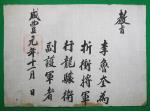 教旨
李膺奎爲
折衝將軍
行龍驤衛
副護軍者
咸豊元年十二月 日